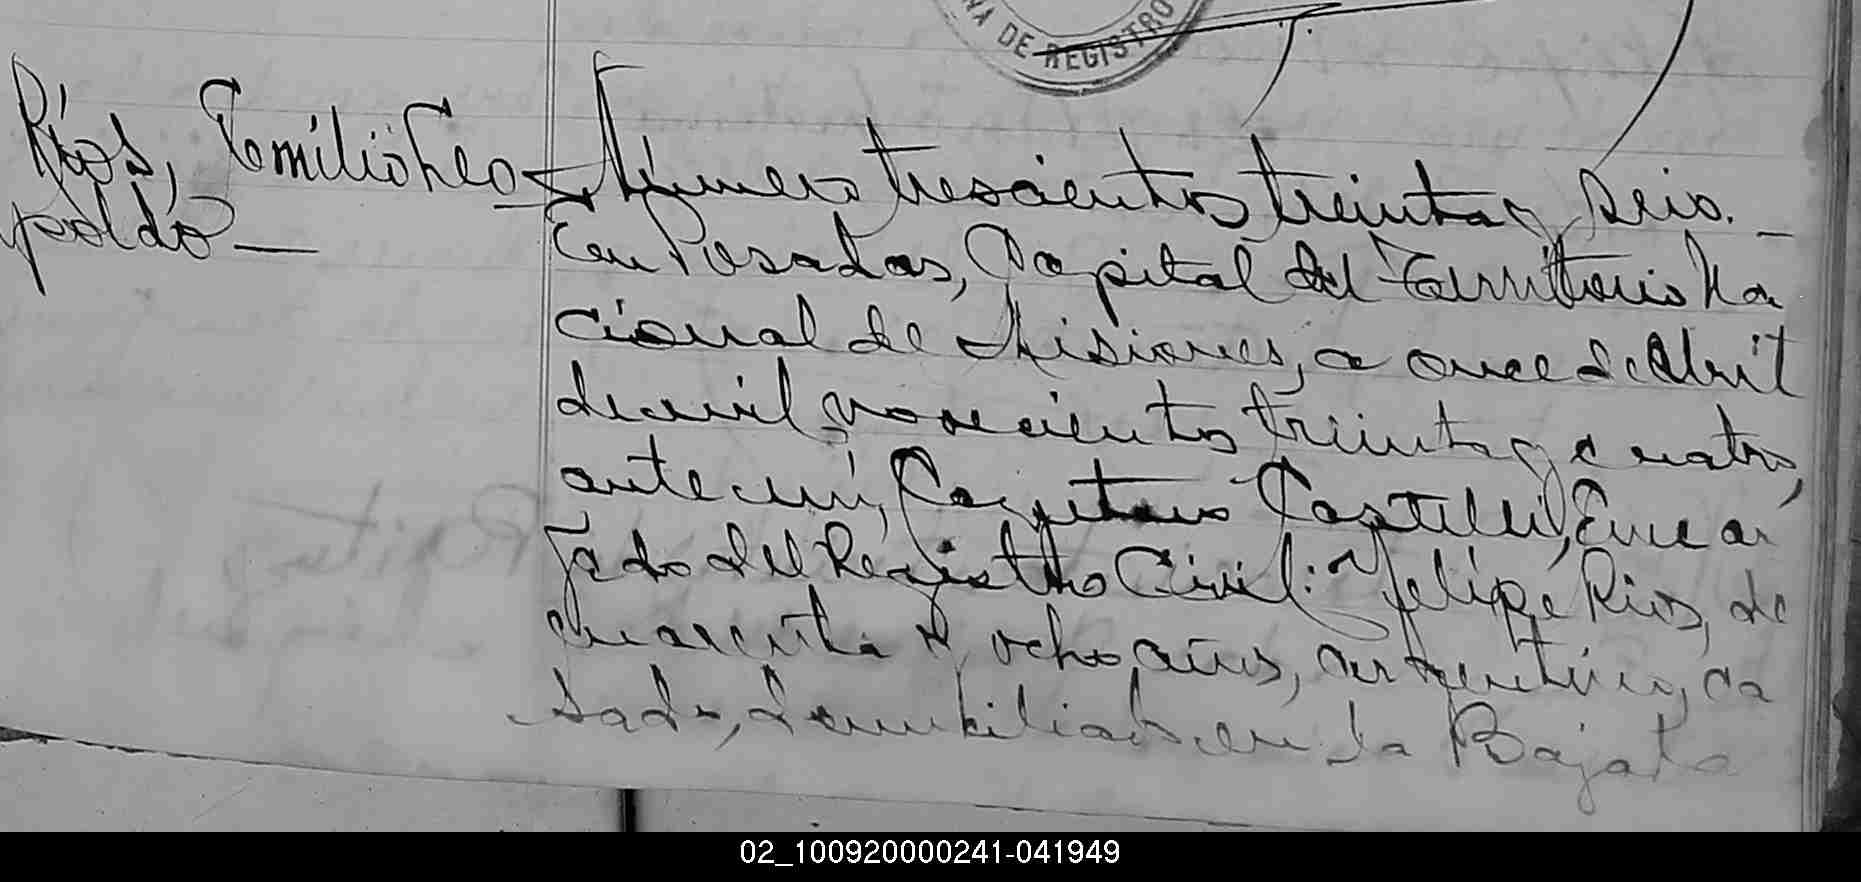 NA DE REGISTRO
Ríos, Emilio Leo=
poldo—
Número trescientos treinta y seis.—
En Posadas, Capital del Territorio Na
cional de Misiones, a once de Abril
de mil novecientos treinta y cuatro,
ante mí, Cayetano Castelli, Encar
gado del Registro Civil: Felipe Rios, de
cuarenta y ocho años, argentino, ca
sado, domiciliado en la Bajada
02_100920000241-041949